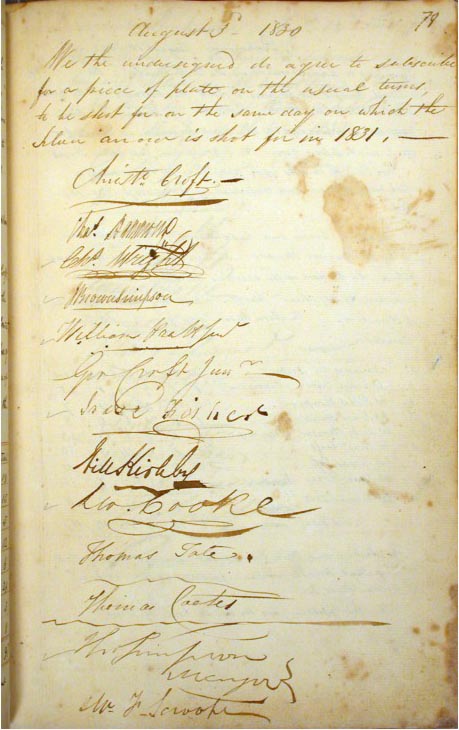 79
August 3d 1830
We the undersigned do agree to subscribe
for a piece of plate on the usual terms,
to be shot for on the same day on which the
Silver arrow is shot for in 1831. —
Christr. Croft. —
Thos.
Wright
Simpson
William
Geo Croft Junr
Kirkby
Geo. Cooke
Thomas Tate.
Thomas Coates
Thos Simpson
Wm. F. Scroope